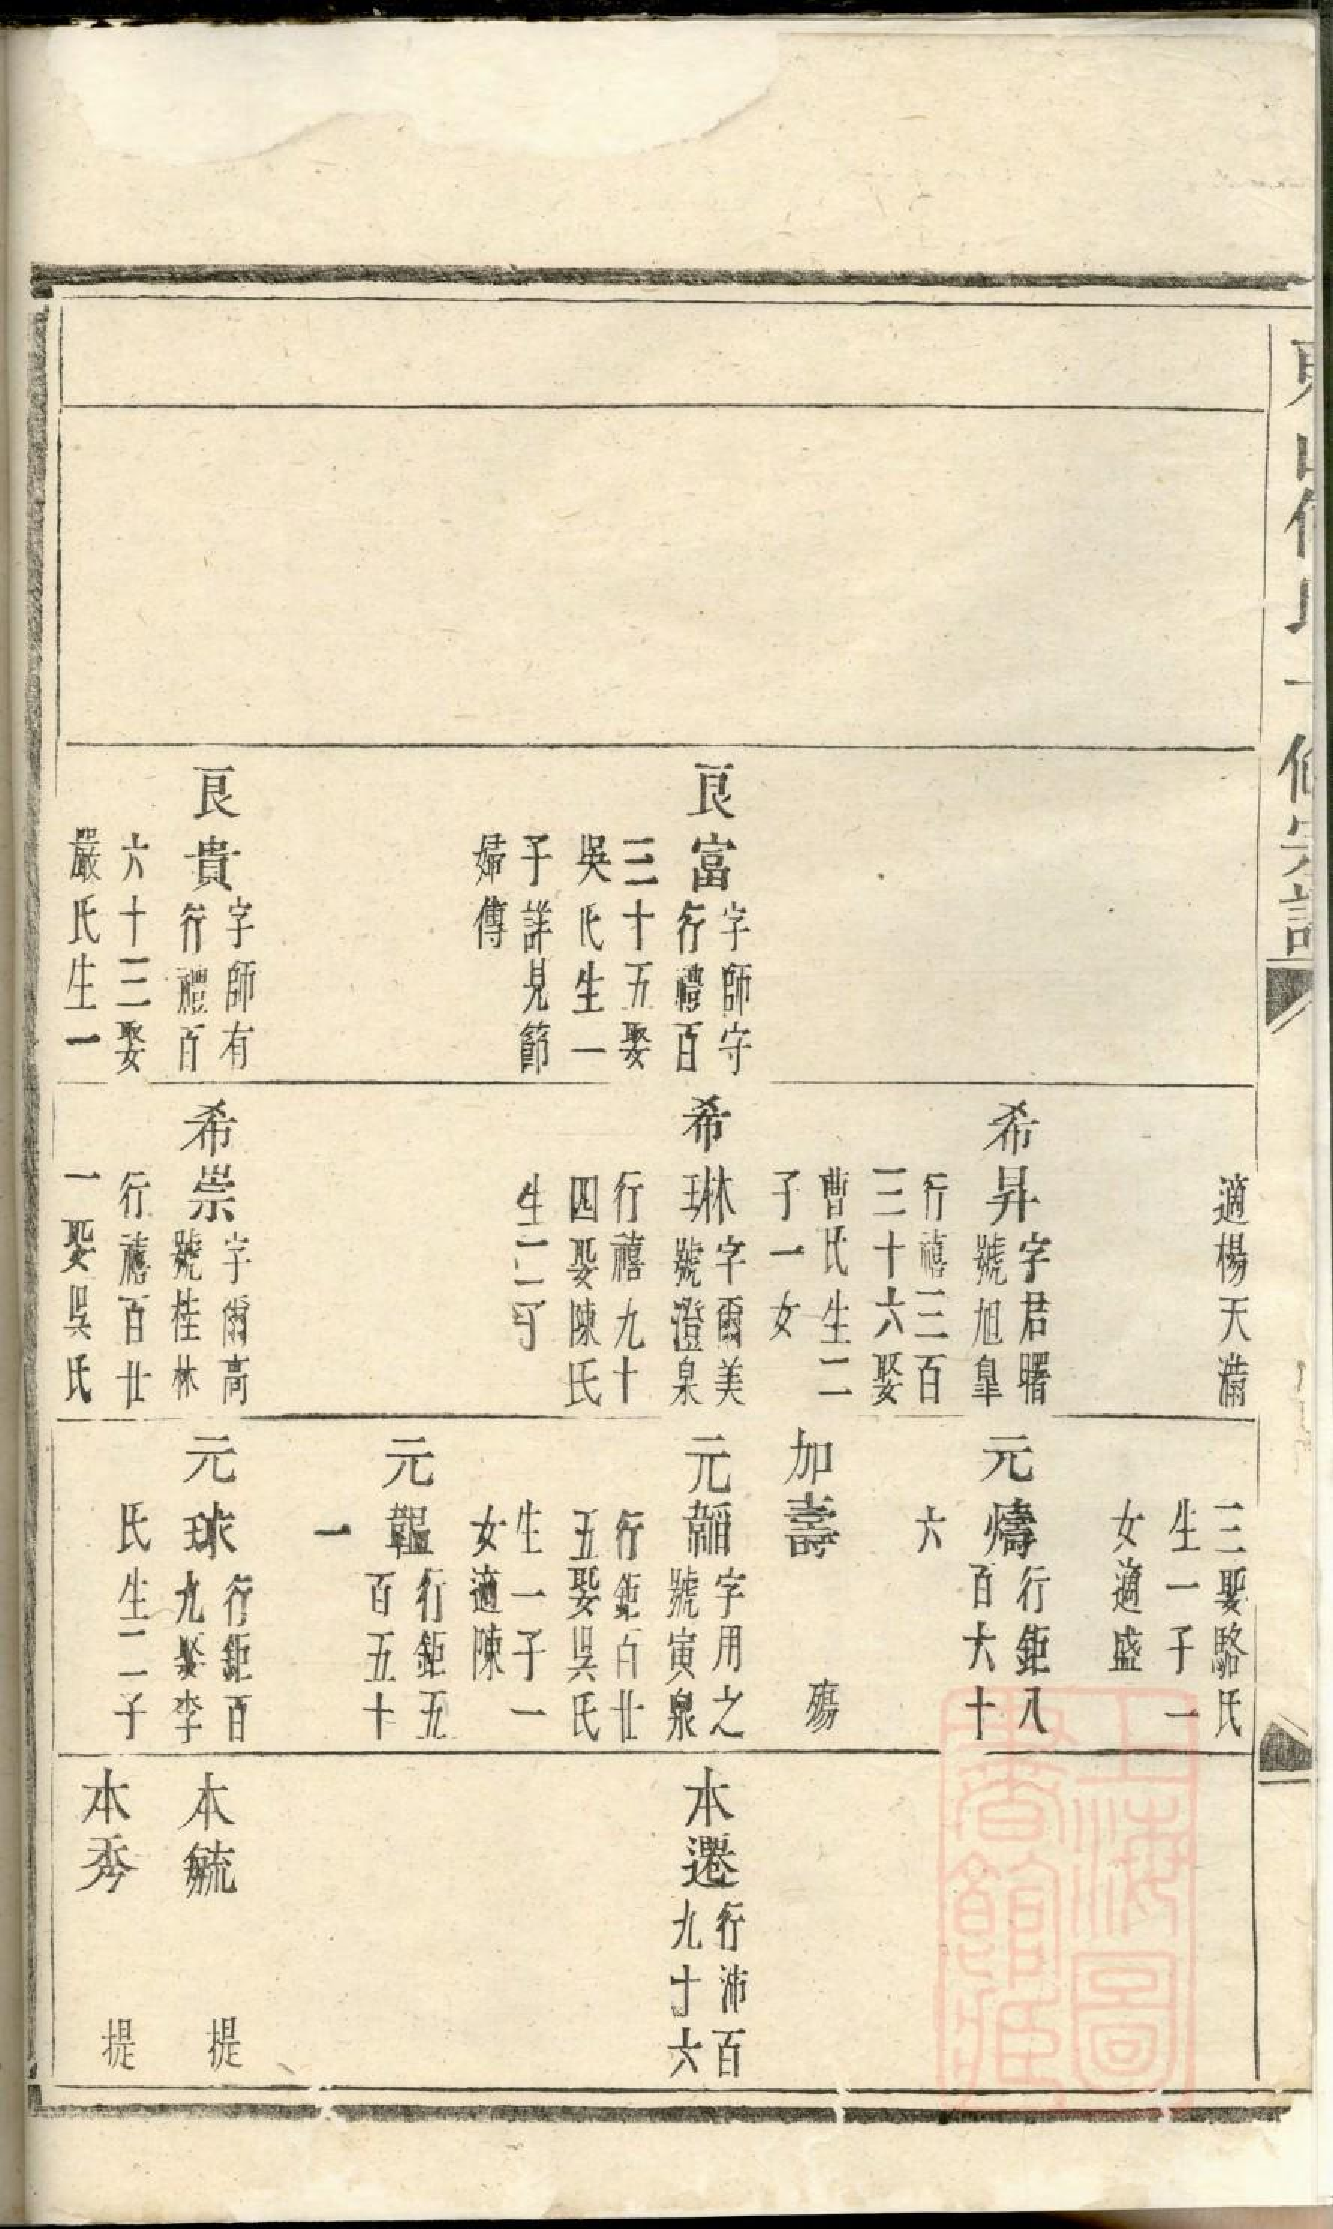 修宗譜
良富
字師守
行禮百
三十五娶
吳氏生一
子詳見節
婦傳
良貴
字師有
行禮百
六十三娶
嚴氏生一
適楊天滿
希昇
字君曙
號旭臯
行禧三百
三十六娶
曹氏生二
子一女
希琳
字爾美
號澄泉
行禧九十
四娶陳氏
生二子
希崇
字爾高
號桂林
行禧百廿
一娶吳氏
三娶駱氏
生一子一
女適盛
元燽
行鉅八
百六十
六
加壽 殤
元
字用之
號寅泉
行鉅百廿
五娶吳氏
生一子一
女適陳
元韞
行鉅五
百五十
一
元球
行鉅百
九娶李
氏生二子
本遷
行沛百
九十六
本毓 提
本秀 提
上海圖
書館藏